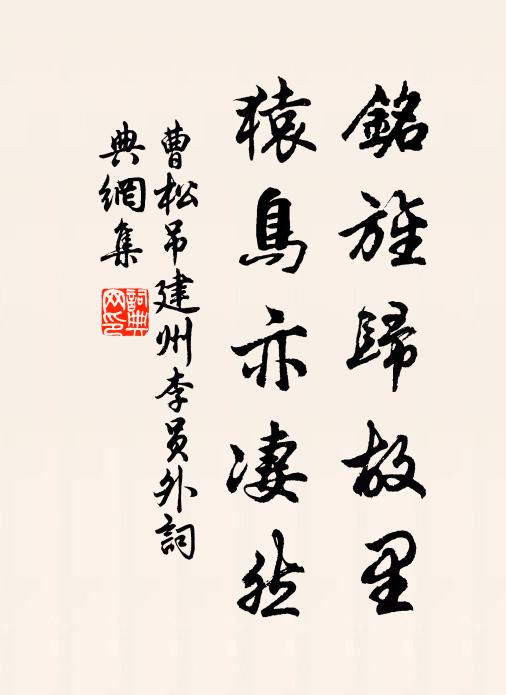 銘旌歸故里
猿鳥亦凄然
曹松吊建州李員外詞
典網集
詞典
网印